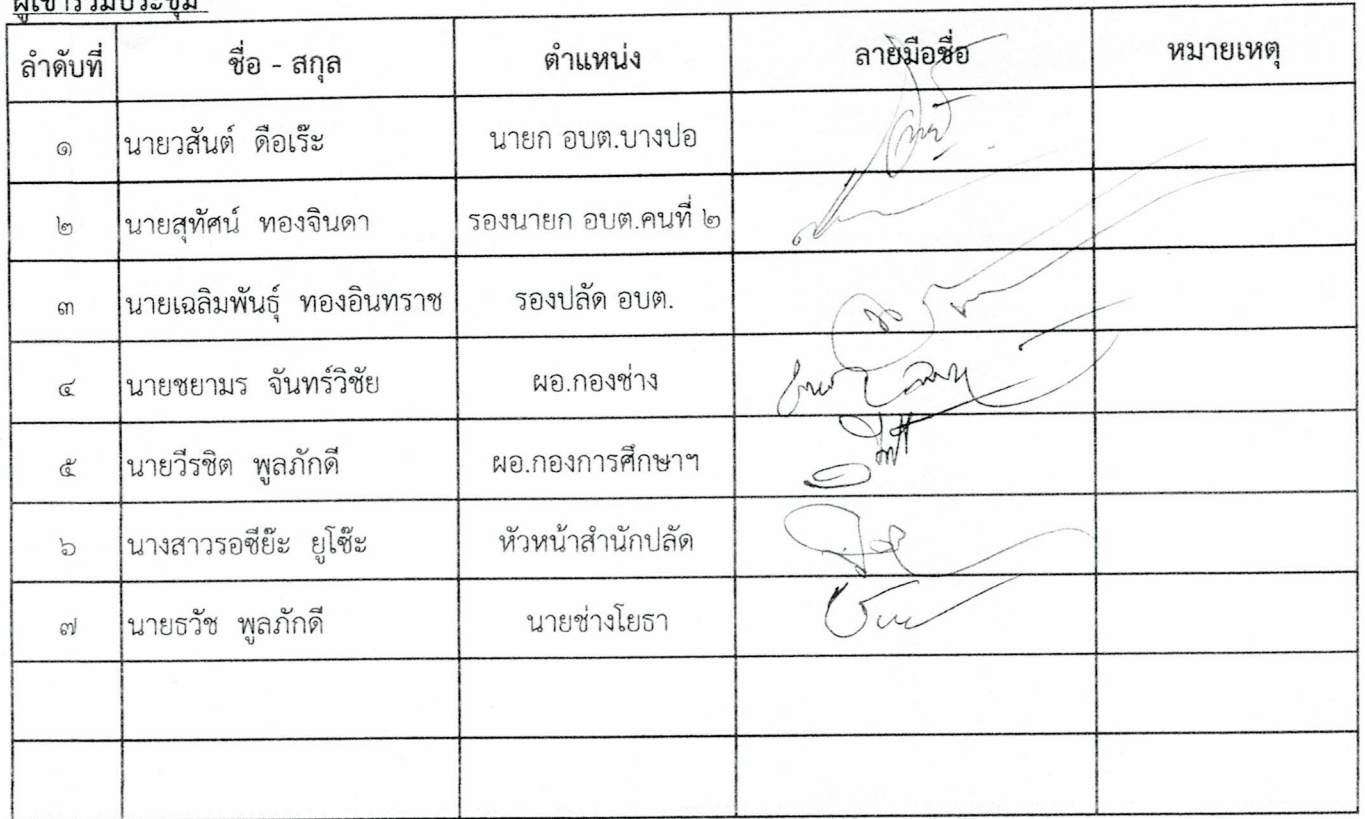 ผู้เข้าร่วมประชุม
ลำดับที่ ชื่อ - สกุล ตำแหน่ง ลายมือชื่อ หมายเหตุ
๑ นายวสันต์ ดือเร๊ะ นายก อบต.บางปอ
๒ นายสุทัศน์ ทองจินดา รองนายก อบต.คนที่ ๒
๓ นายเฉลิมพันธุ์ ทองอินทราช รองปลัด อบต.
๔ นายชยามร จันทร์วิชัย ผอ.กองช่าง
๕ นายวีรชิต พูลภักดี ผอ.กองการศึกษาฯ
๖ นางสาวรอซีย๊ะ ยูโซ๊ะ หัวหน้าสำนักปลัด
๗ นายธวัช พูลภักดี นายช่างโยธา